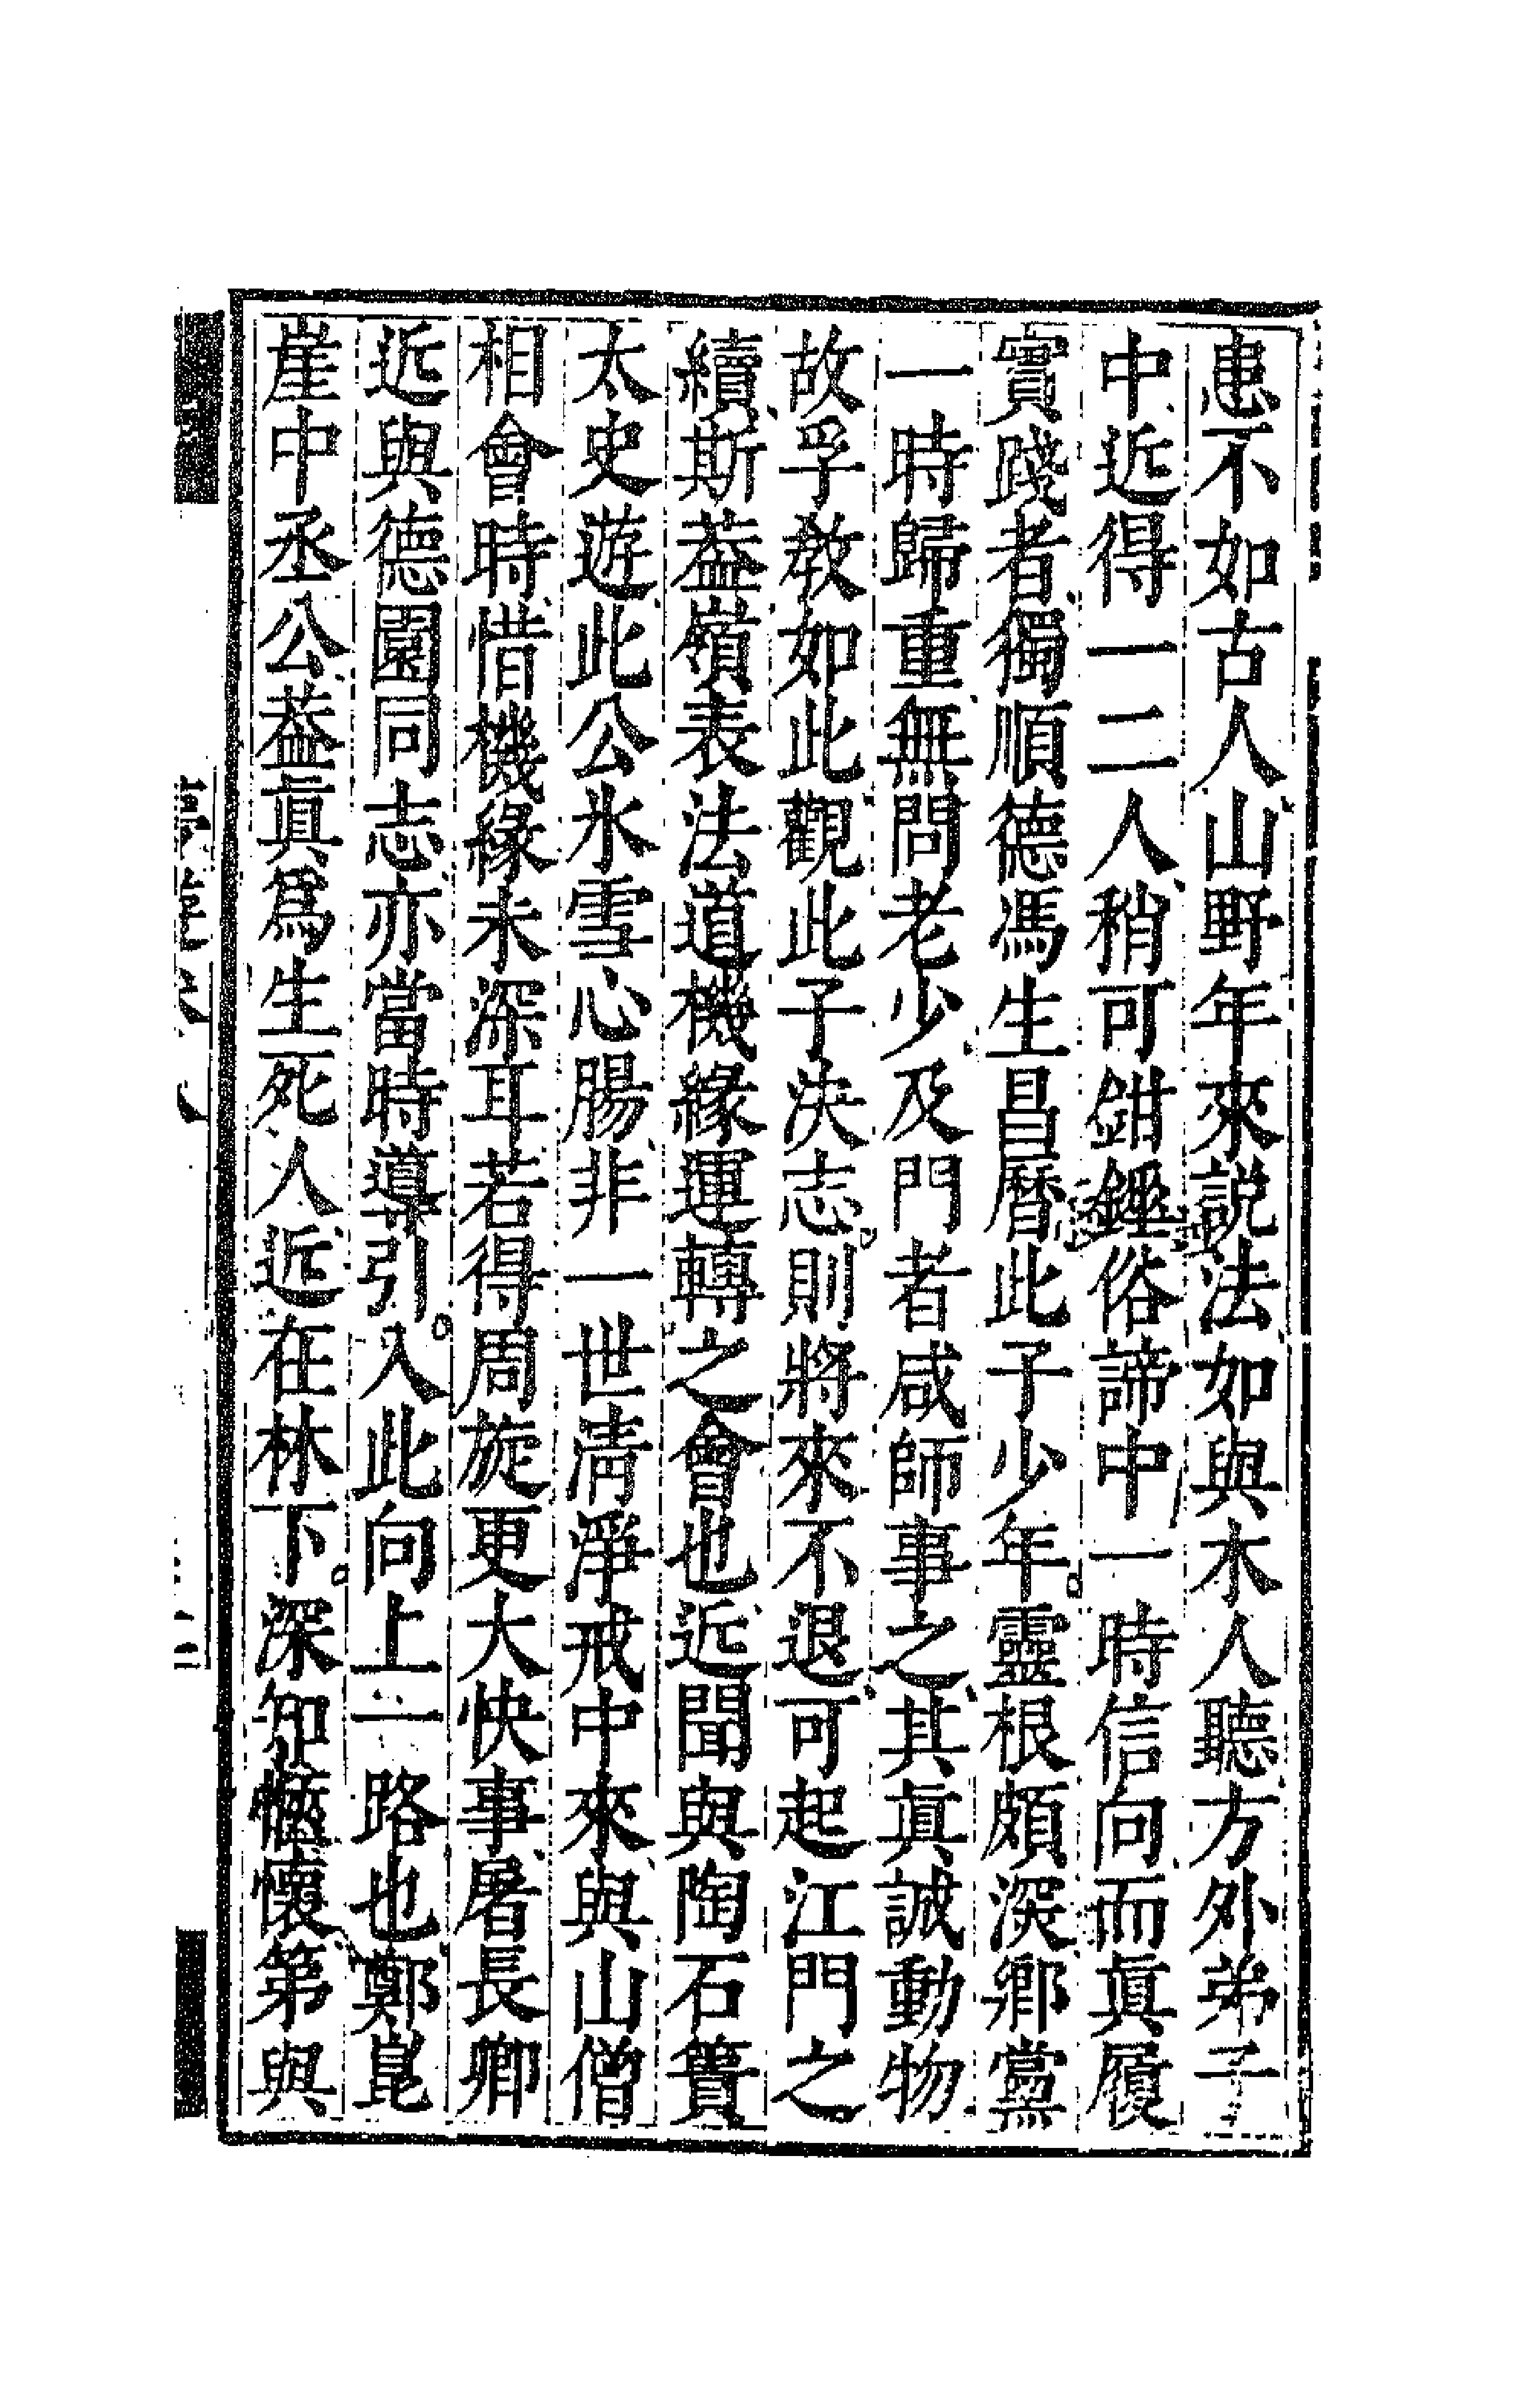 患不如古人山野年來説法如與木人聽方外弟子
中近得一二人稍可鉗錘俗諦中一時信向而眞履
實踐者獨順德馮生昌曆此子少年靈根頗深鄉黨
一時歸重無問老少及門者咸師事之其眞誠動物
故孚教如此觀此子決志則將來不退可起江門之
續斯葢嶺表法道機緣運轉之會也近聞與陶石簣
太史遊此公氷雪心腸非一世清淨戒中來與山僧
相會時惜機緣未深耳若得周旋更大快事屠長卿
近與德園同志亦當時導引入此向上一路也鄭崑
崖中丞公葢眞爲生死人近在林下深知懷第與